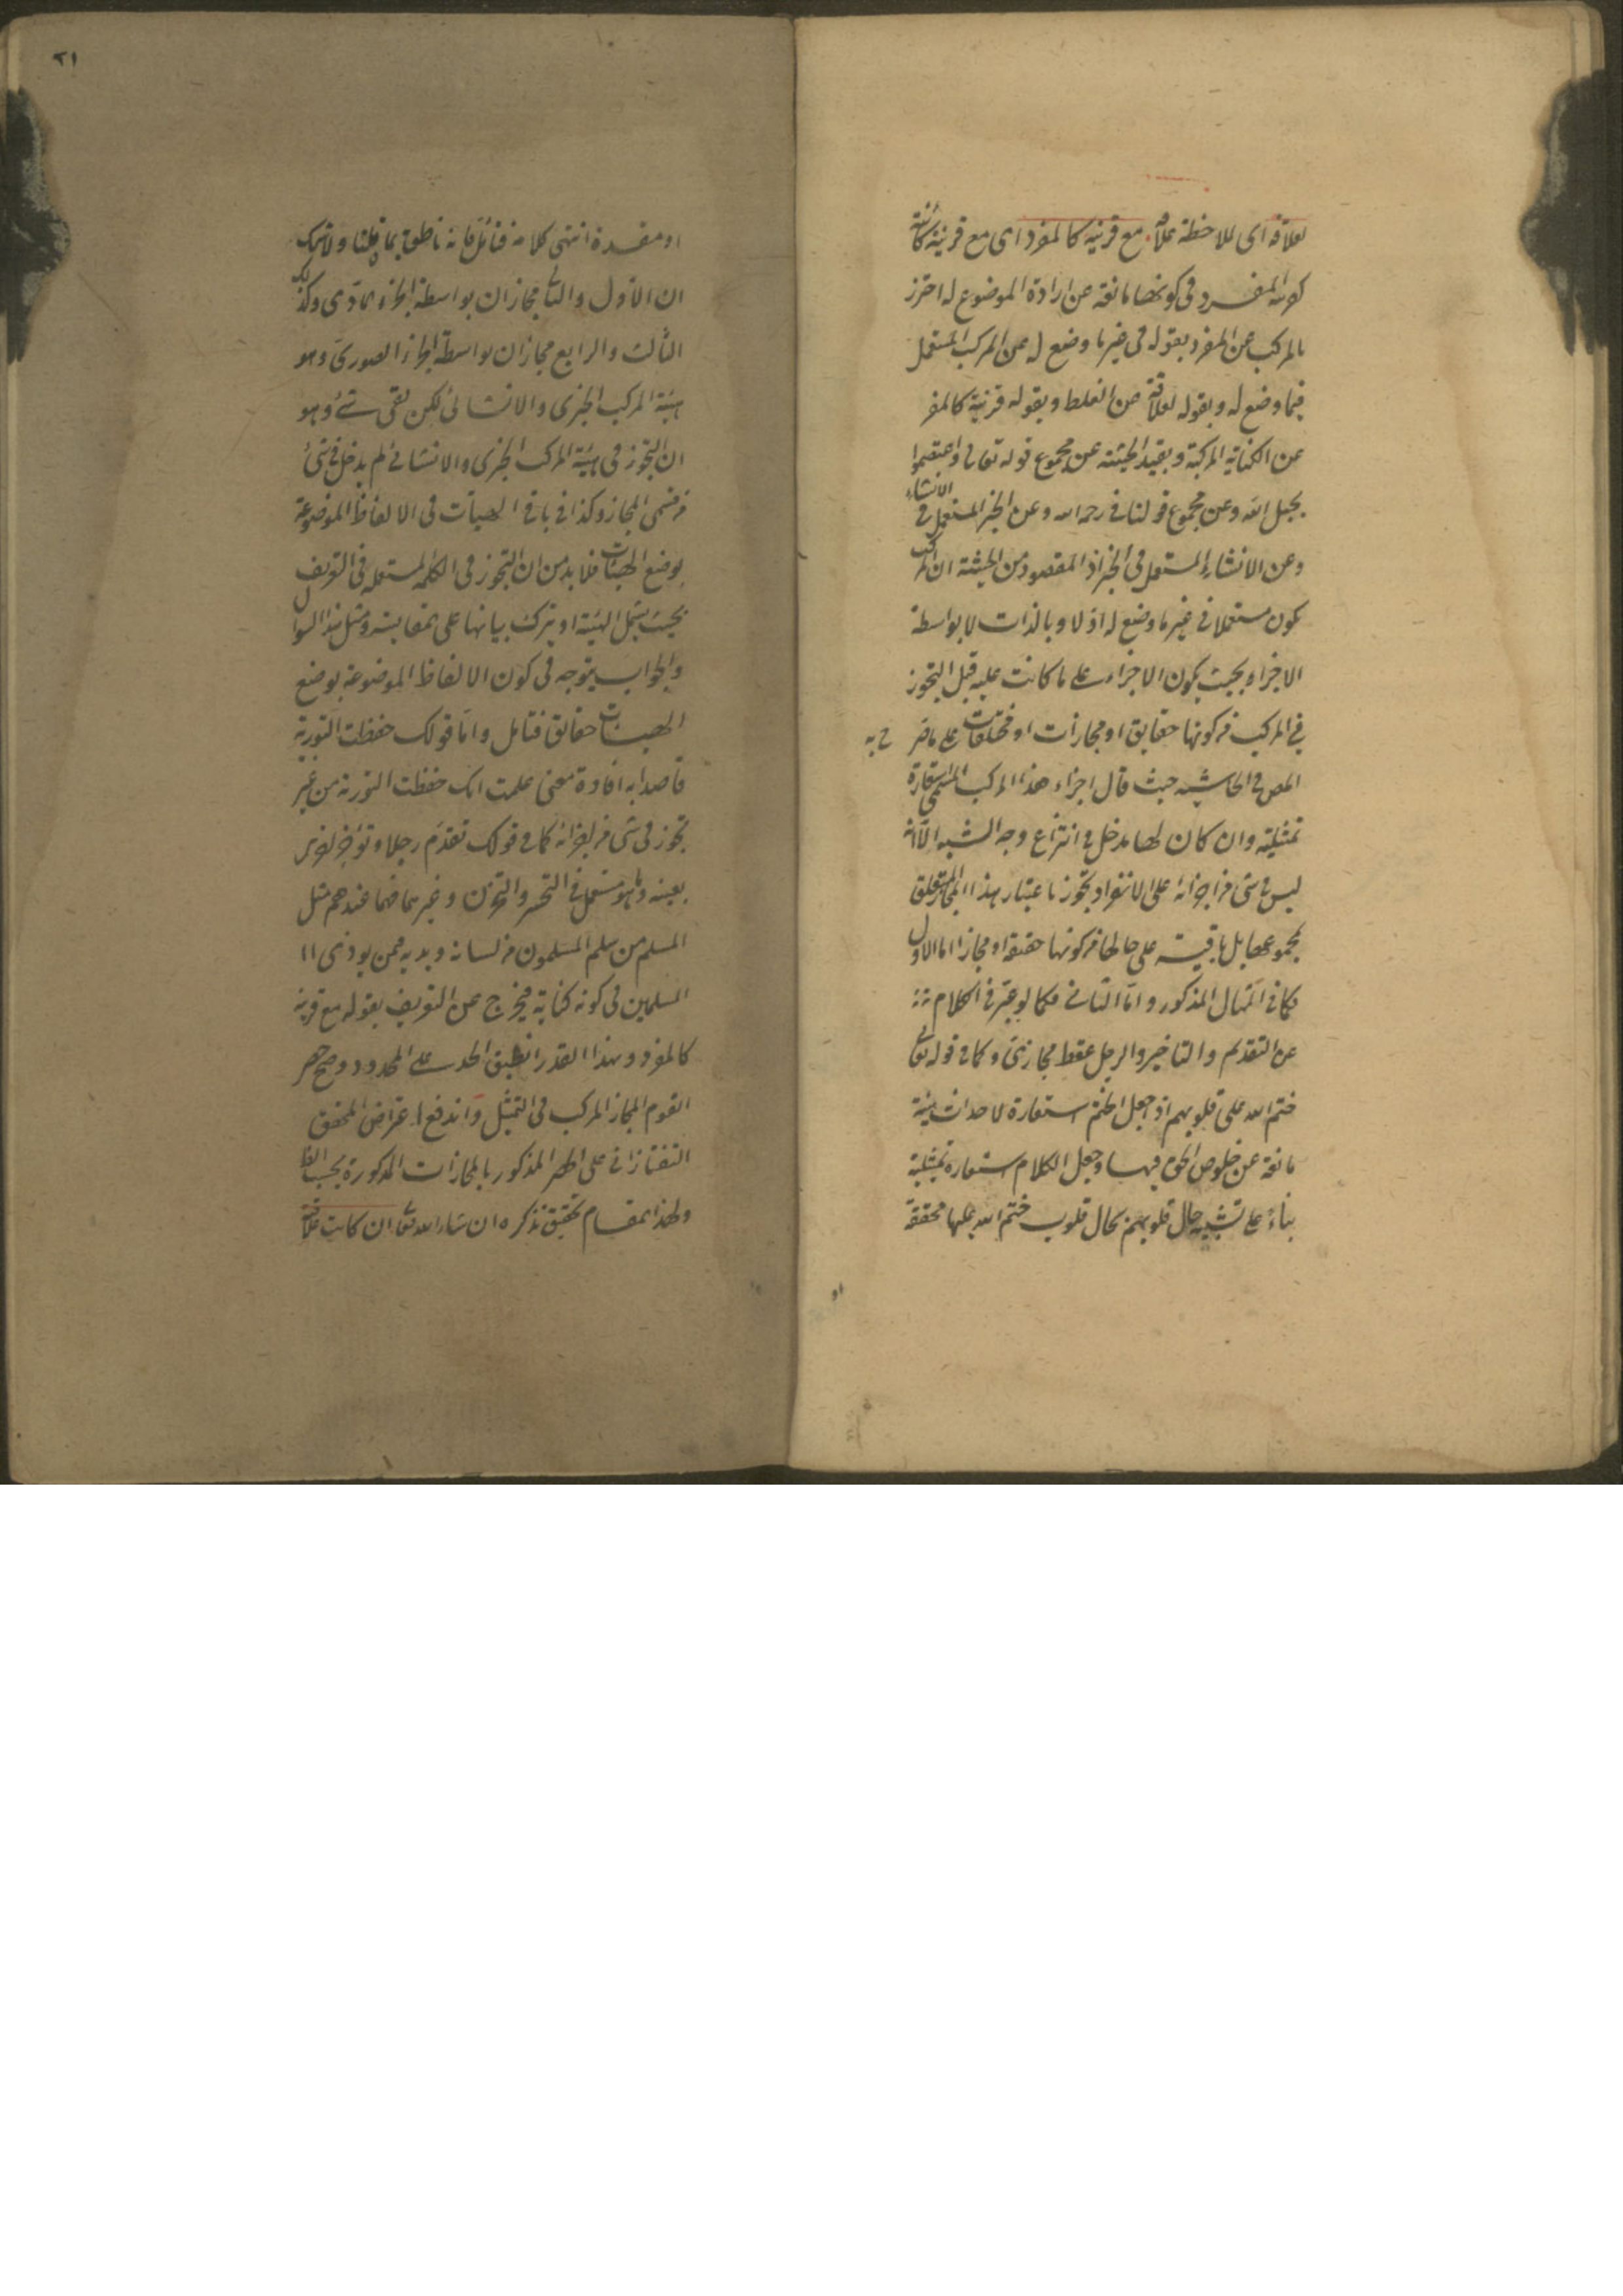 لعلاقة اى للاحظة علاقة مع قرينة كالمفرد اى مع قرينة كائنة
كقرينة المفرد فى كونها مانعة عن ارادة الموضوع له احترز
بالمركب عن المفرد بقوله فى غير ما وضع له عن المركب المستعمل
فيما وضع له وبقوله لعلاقة عن الغلط وبقوله قرينة كالمفر
عن الكناية المركبة وبقيد الحيثية عن مجموع قوله تعالى واعتصموا
بحبل الله وعن مجموع قولنا فى رحمة الله وعن الخبر المستعمل فى الانشاء
وعن الانشاء المستعمل فى الخبر اذ المقصود من الحيثية ان المركب
يكون مستعملا فى غير ما وضع له اولا وبالذات لا بواسطة
الاجزاء بحيث يكون الاجزاء على ما كانت عليه قبل التجوز
فى المركب من كونها حقايق او مجازات او مختلفات على ما صرح به
المص فى الحاشية حيث قال اجزاء هذا المركب المسمى استعارة
تمثيلية وان كان لها مدخل فى انتزاع وجه الشبه الا انه
ليس فى شئ من اجزائه على الانفراد تجوز باعتبار هذا المجاز المتعلق
بمجموعها بل باقية على حالها من كونها حقيقة او مجازا اما الاول
فكما فى المثال المذكور واما الثانى فكما لو عبر فى الكلام
عن التقديم والتاخير والرجل فقط مجازى وكما فى قوله تعالى
ختم الله على قلوبهم اذ جعل الختم استعارة لاحداث هيئة
مانعة عن خلوص الحق فيها وجعل الكلام استعارة تمثيلية
بناء على تشبيه حال قلوبهم بحال قلوب ختم الله عليها محققة
او
٢١
او مقدرة انتهى كلامه فتأمل فانه ناطق بما قلنا ولا شك
ان الاول والثانى مجازان بواسطة الجزء المادى وكذلك
الثالث والرابع مجازان بواسطة الجزء الصورى وهو
هيئة المركب الخبرى والانشائى لكن بقى شئ وهو
ان التجوز فى هيئة المركب الخبرى والانشائى لم يدخل فى شئ
من قسمى المجاز وكذا فى باقى الهيئات فى الالفاظ الموضوعة
بوضع الهيئات فلا بد من ان التجوز فى الكلمة المستعملة فى التعريف
بحيث يشمل الهيئة او يترك بيانها على المقايسة ومثل هذا السؤال
والجواب يتوجه فى كون الالفاظ الموضوعة بوضع
الهيئات حقائق فتامل واما قولك حفظت التورية
قاصدا به افادة معنى علمت انك حفظت التورية من غير
تجوز فى شئ من اجزائه كما فى قولك تقدم رجلا وتؤخر اخرى
بعينه وما هو مستعمل فى التحسر والتحزن وغيرهما فهما عندهم مثل
المسلم من سلم المسلمون من لسانه ويده فمن يوذى
المسلمين فى كونه كناية فيخرج عن التعريف بقوله مع قرينة
كالمفرد وبهذا القدر انطبق الحد على المحدود وصح حصر
القوم المجاز المركب فى التمثيل واندفع اعتراض المحقق
التفتازانى على الحصر المذكور بالمجازات المذكورة بحسب الظا
ولهذا المقام تحقيق نذكره ان شاء الله تعالى ان كانت علاقة